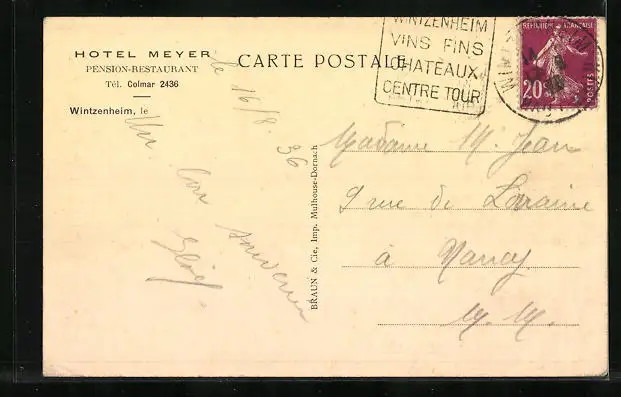 HOTEL MEYER
PENSION-RESTAURANT
Tél. Colmar 2436
Wintzenheim, le
le 16/8. 36
Un bon
souvenir
CARTE POSTALE
BRAUN & Cie, Imp. Mulhouse-Dornach
WINTZENHEIM
VINS FINS
CHATEAUX
CENTRE TOUR
REPUBLIQUE FRANÇAISE
20c
POSTES
Madame M. Jean
9 rue de Lorraine
à Nancy
M. M.